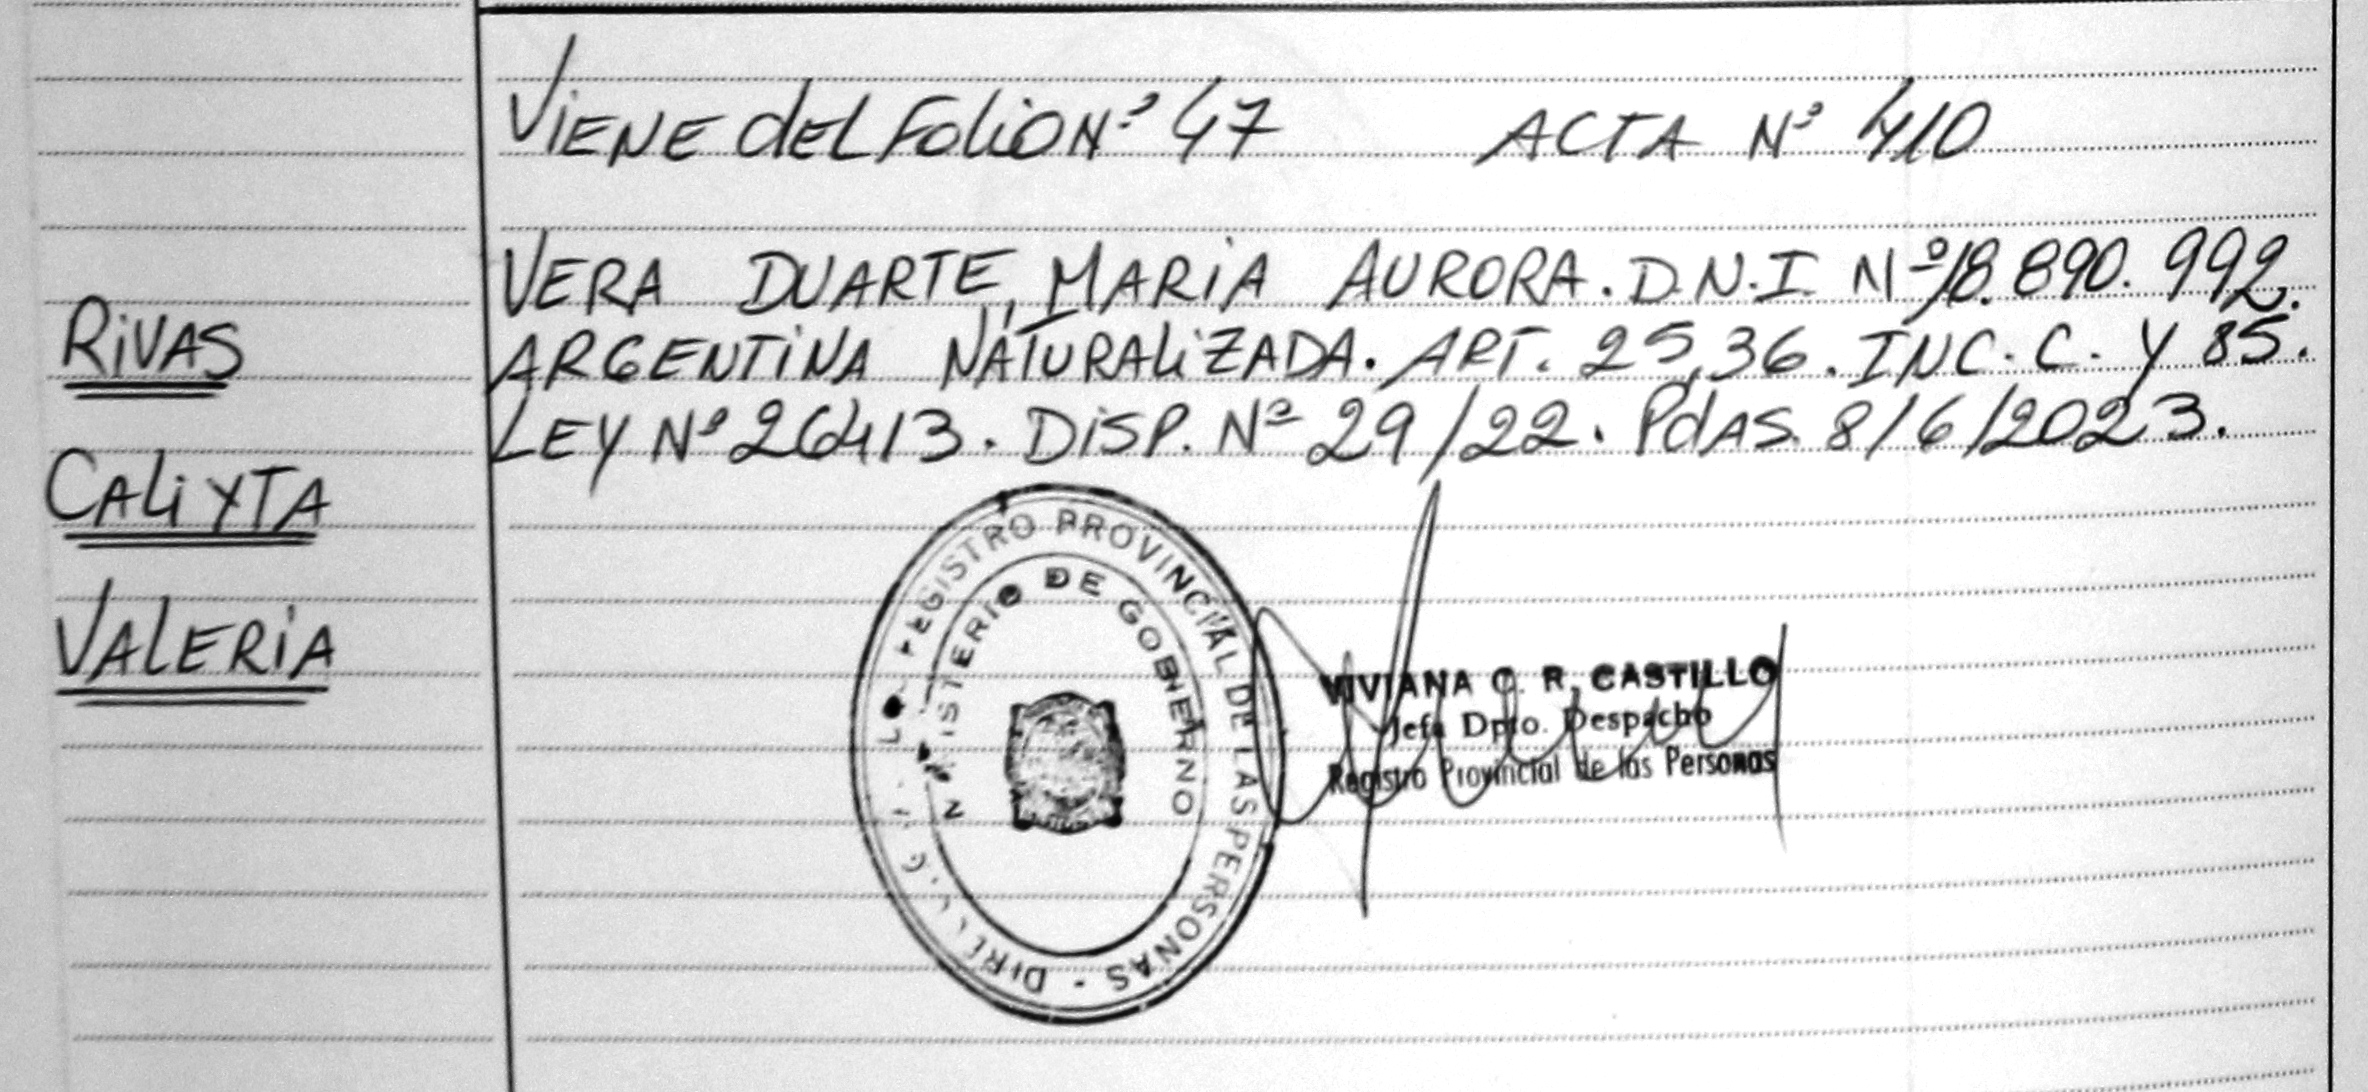 Viene del Folio Nº 47 ACTA Nº 410
VERA DUARTE, MARIA AURORA. D.N.I. Nº 18.890.992.
ARGENTINA NATURALIZADA. ART. 25,36. INC. C. Y 85.
LEY Nº 26413. DISP. Nº 29/22. PdAS. 8/6/2023.
RIVAS
CALIXTA
VALERIA
REGISTRO PROVINCIAL DE LAS PERSONAS -
DE GOBIERNO
VIVIANA C. R. CASTILLO
Jefa Dpto. Despacho
Registro Provincial de las Personas